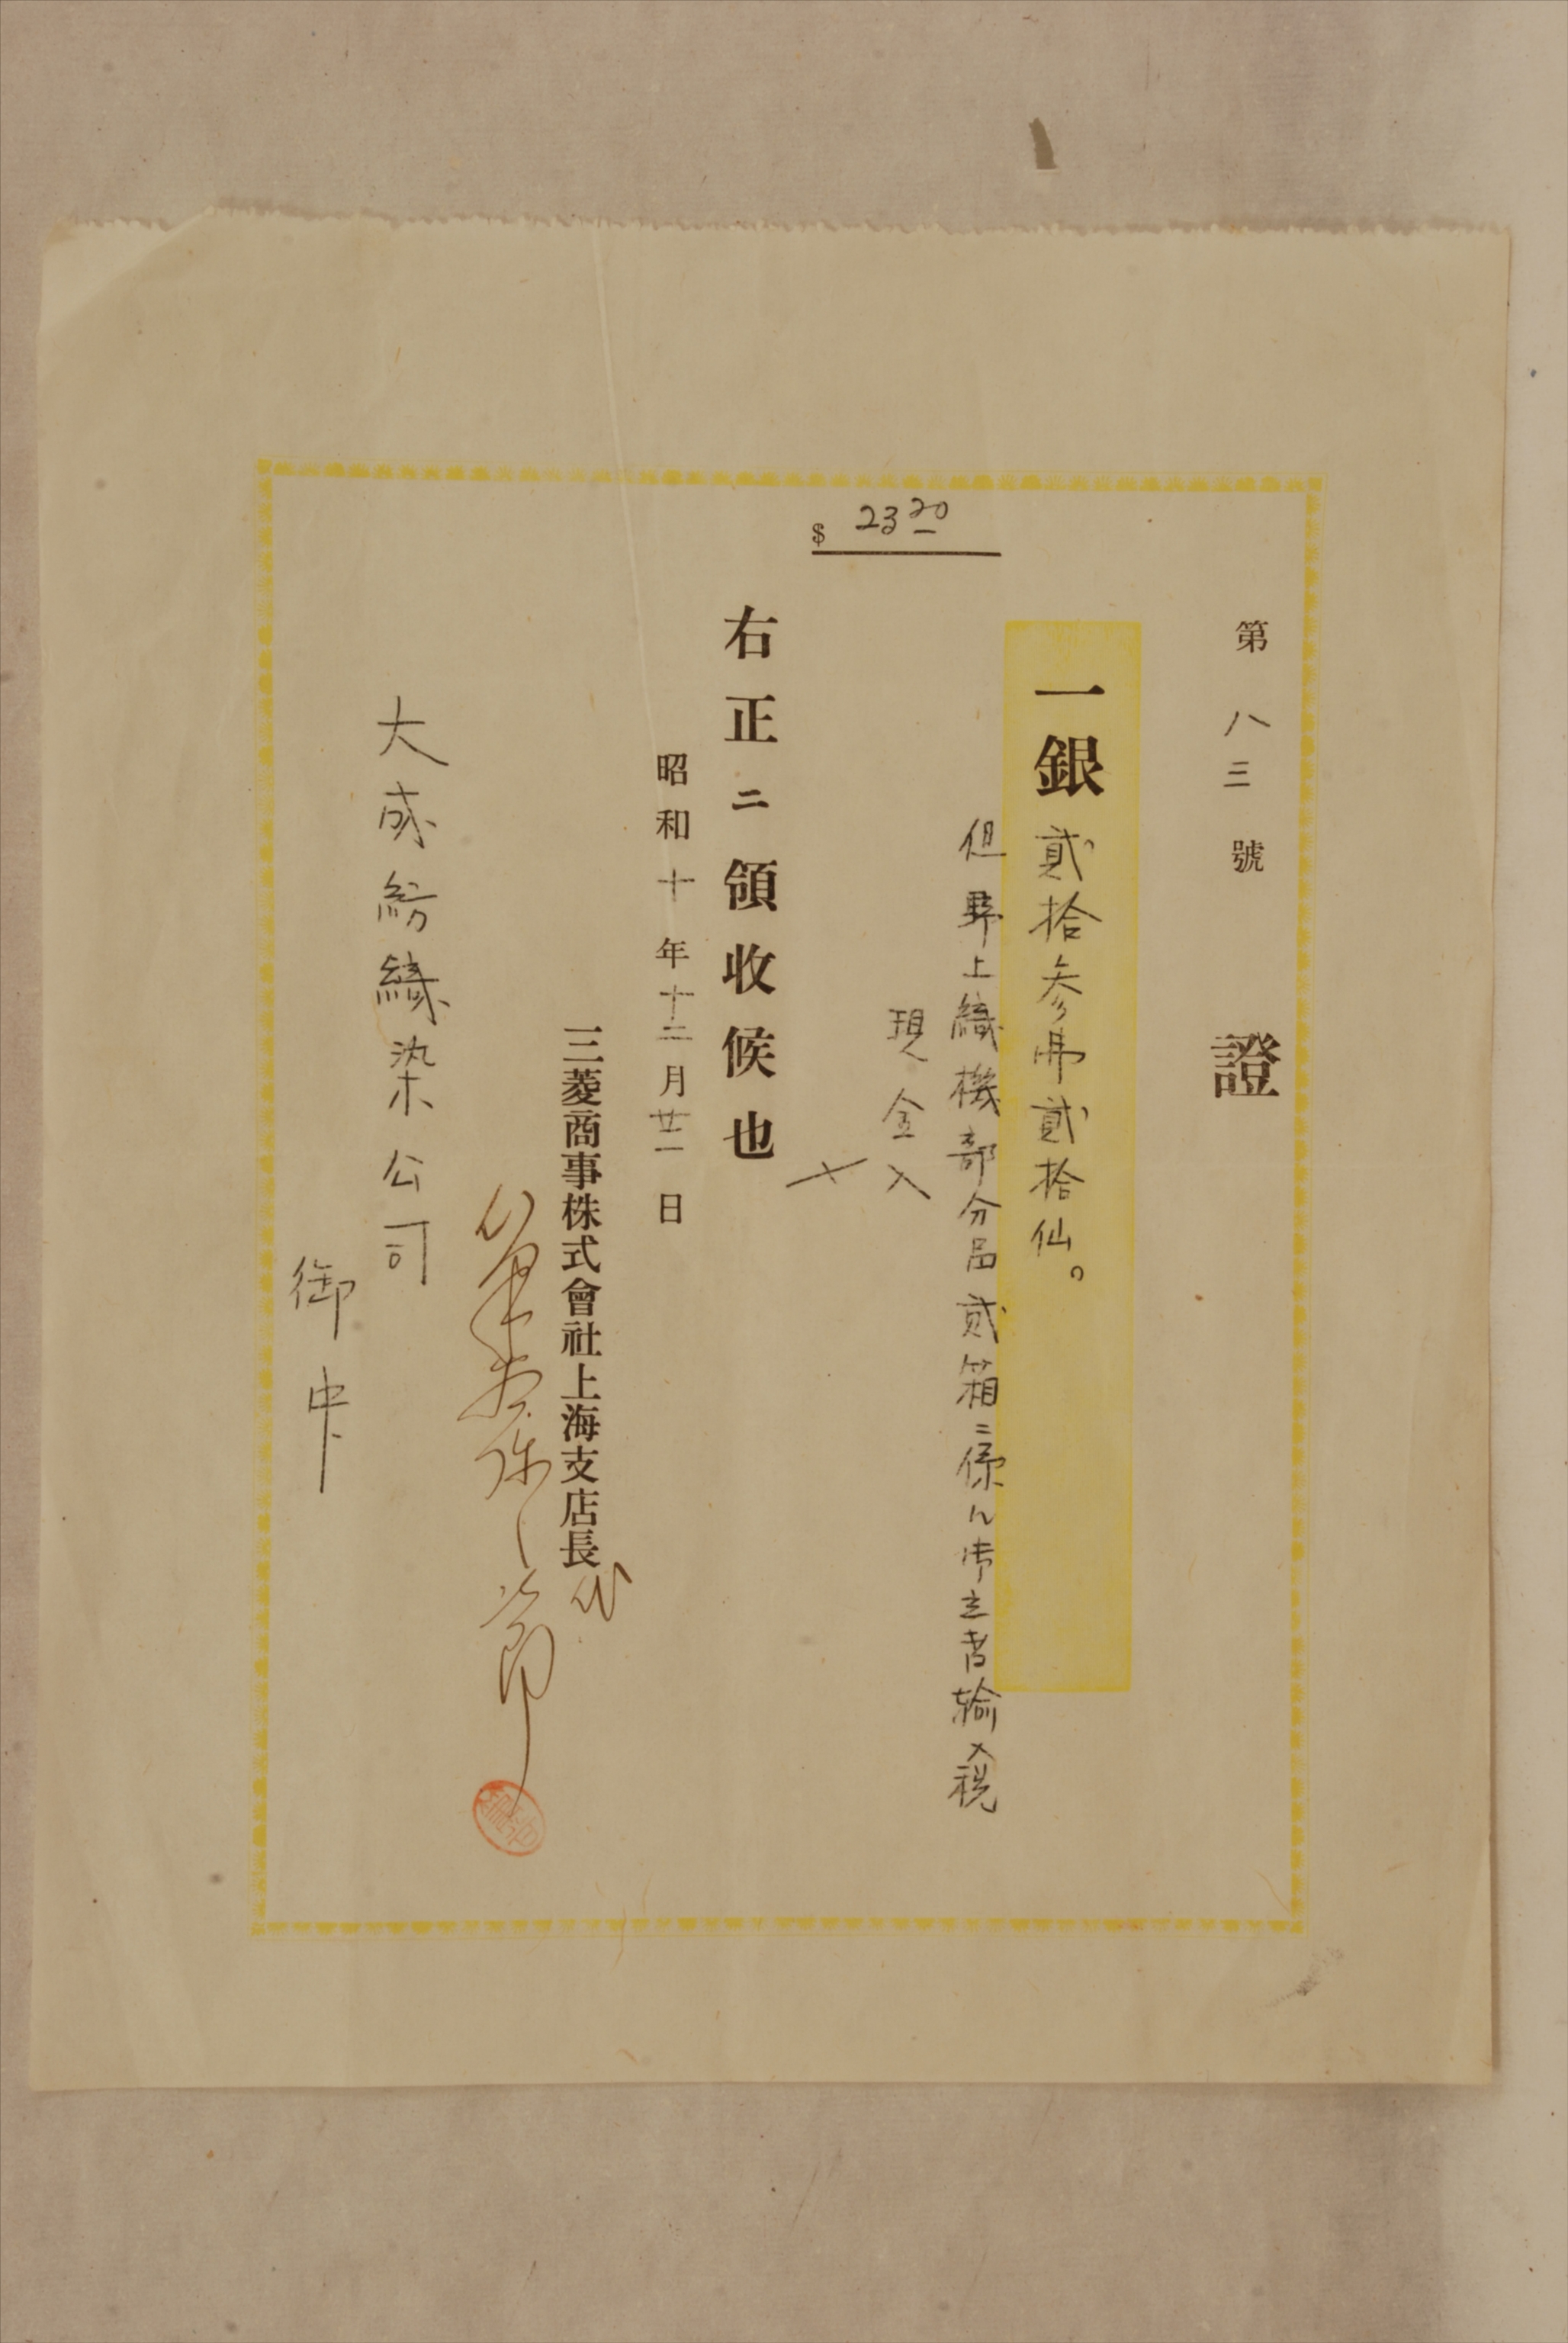 第八三號
證
一銀貳拾参弗貳拾仙。
但野上織機部分品貳箱ニ係ル御立替輸入税
現金入
$ 23 20
右正ニ領收候也
昭和十年十二月廿一日
三菱商事株式會社上海支店長代
大成紡織染公司
御中